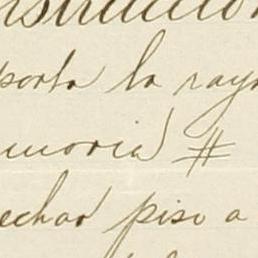 nstruccion
porta la raya
moria #
echar piso a